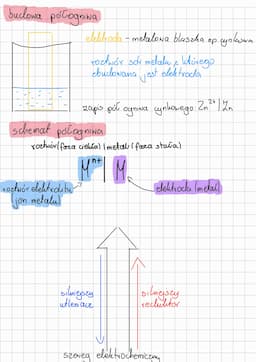 budowa półogniwa
elektroda - metalowa blaszka np cynkowa
roztwór soli metalu z którego
zbudowana jest elektroda
zapis półogniwa cynkowego Zn²⁺|Zn
schemat półogniwa
roztwór (faza ciekła) | metal (faza stała)
Mⁿ⁺ | M
roztwór elektrolitu
(jon metalu)
elektroda (metal)
silniejszy
utleniacz
silniejszy
reduktor
szereg elektrochemiczny